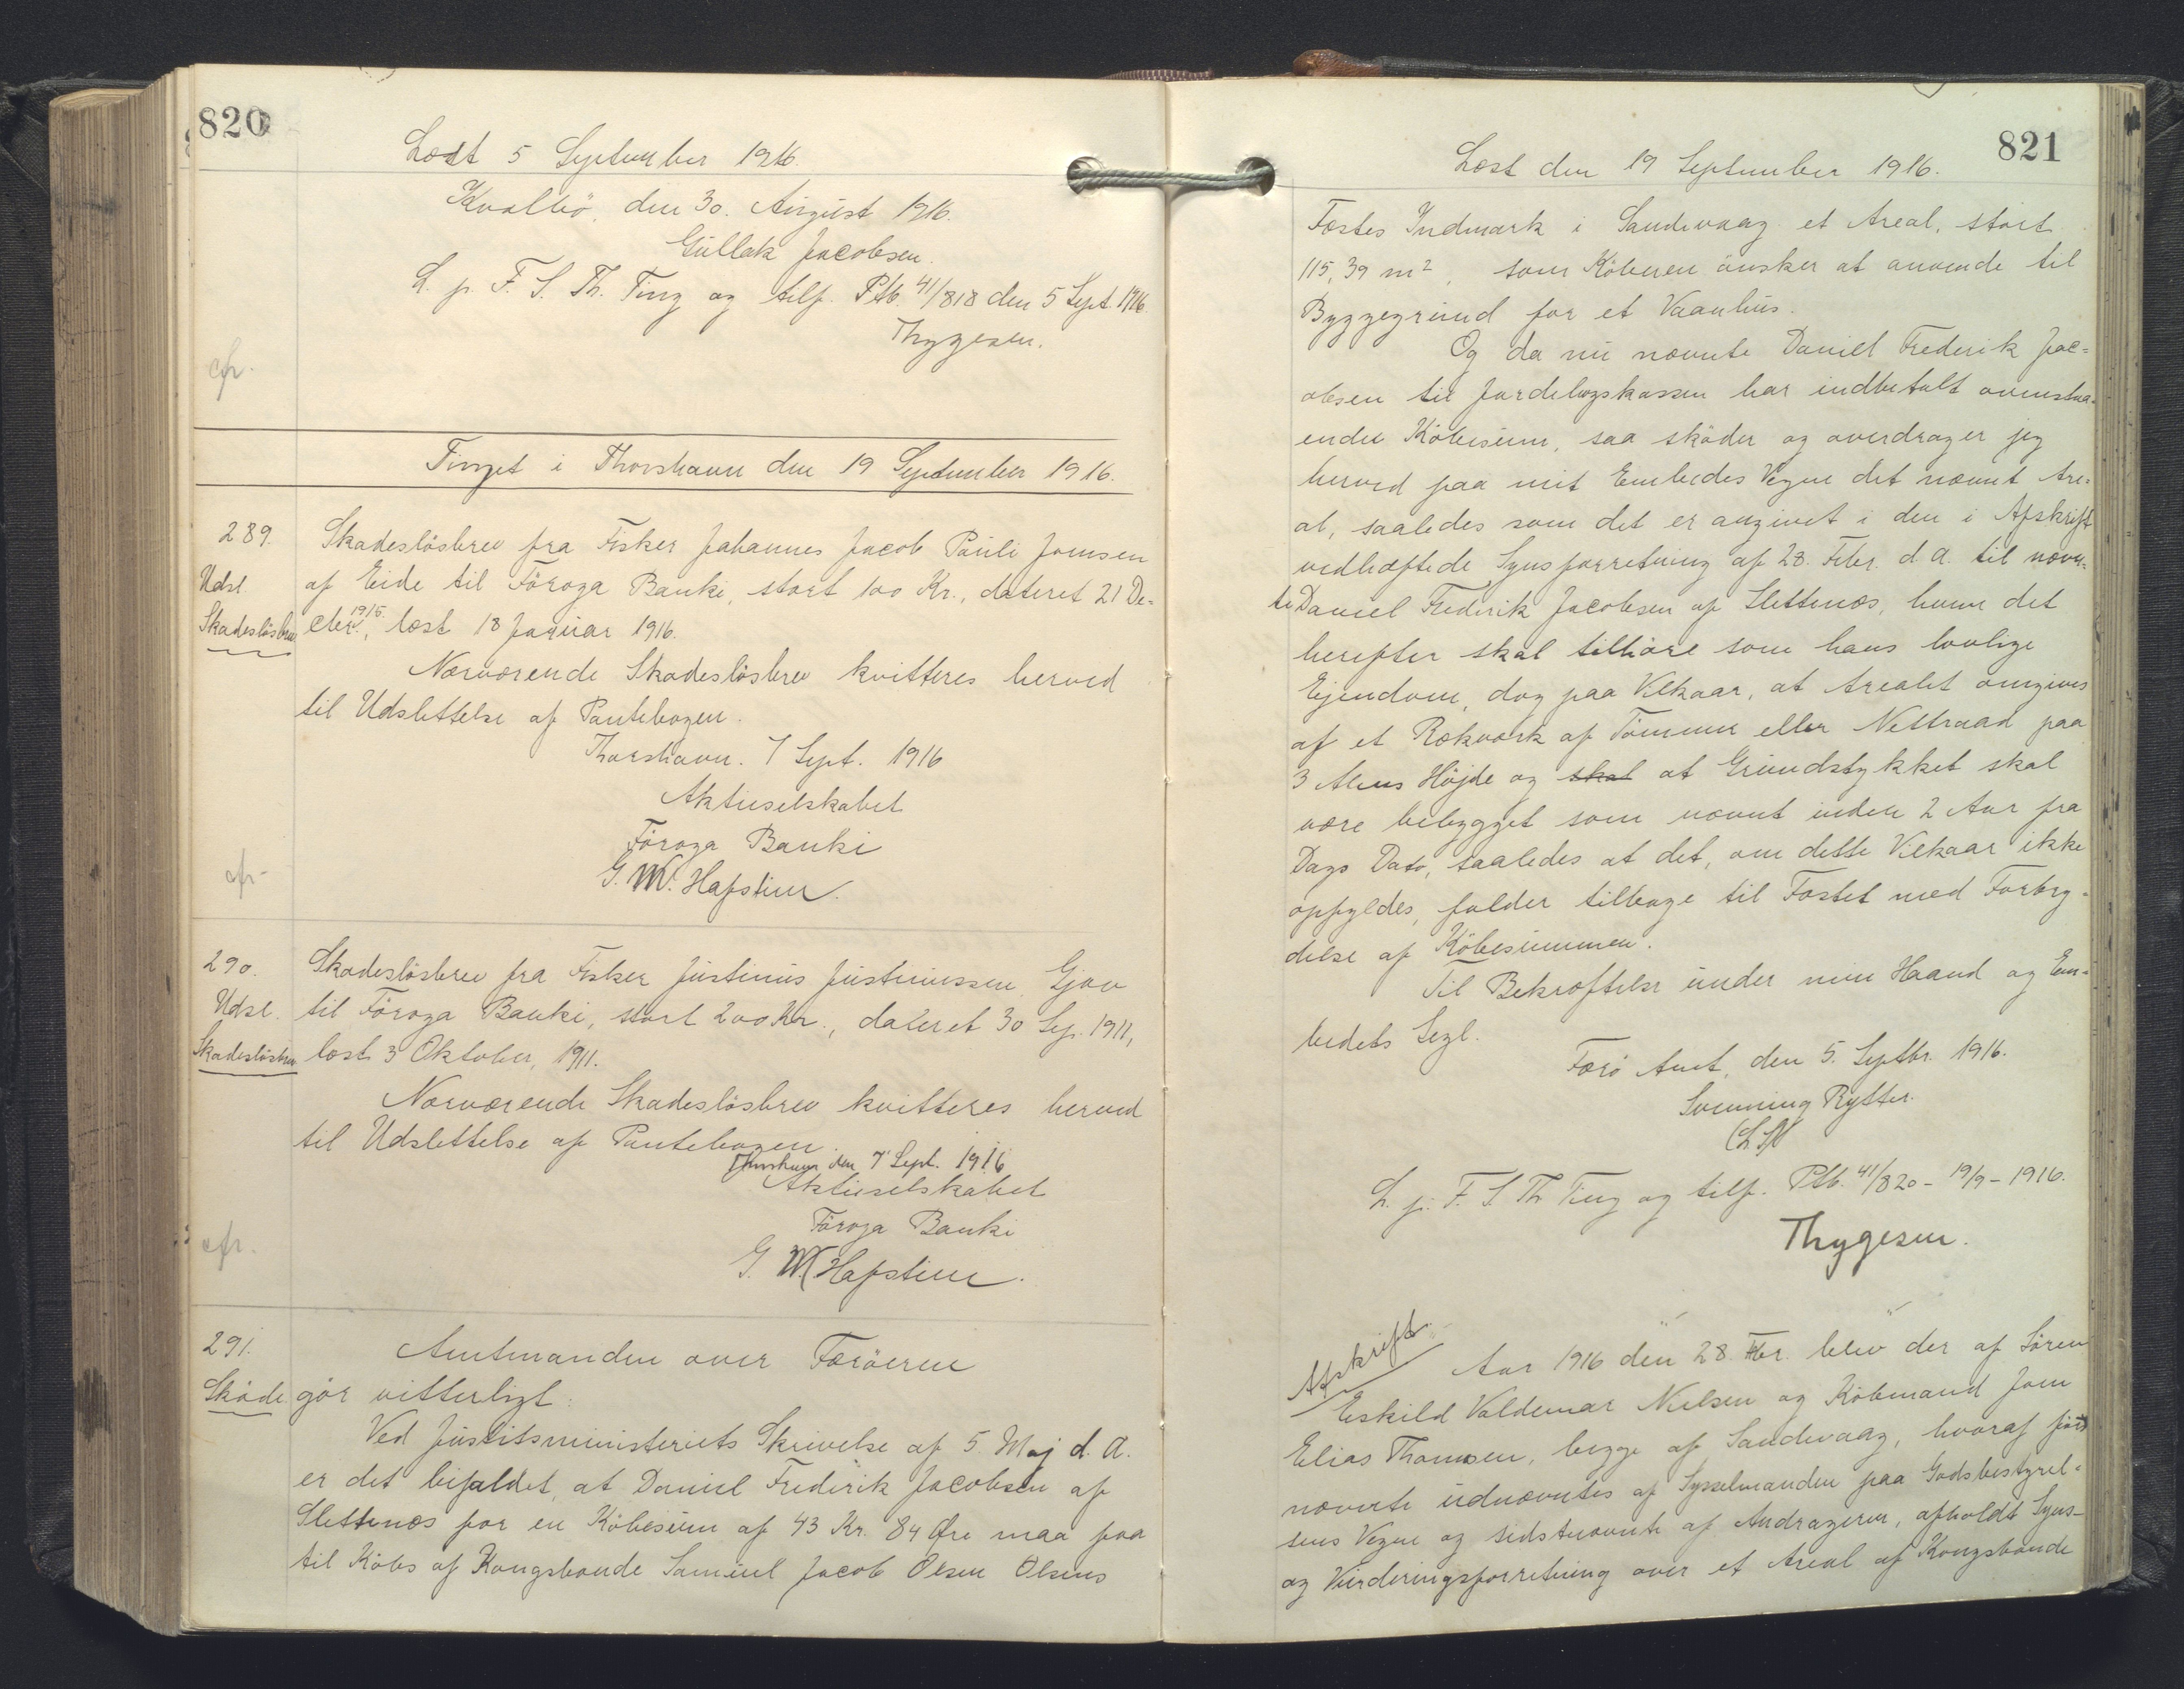 820
Læst 5 September 1916.
Kvalbö, den 30. August 1916.
Gullak Jacobsen.
L. p. F. S. Th. Ting og tilf. Ptb. 41/818 den 5 Sept. 1916
Thygesen.
cfr.
Tinget i Thorshavn den 19 September 1916.
289. Skadeslösbrev fra Fisker Johannes Jacob Pauli Joensen
Udsl. af Eide til Föroya Banki, stort 100 Kr., dateret 21 De=
Skadeslösbrev cbr. 1915, læst 18 Januar 1916.
Nærværende Skadeslösbrev kvitteres herved
til Udslettelse af Pantebogen.
Thorshavn. 7 Sept. 1916
Aktieselskabet
Föroya Banki
cfr.
290. Skadeslösbrev fra Fisker Justinus Justinussen, Gjov
Udsl. til Föroya Banki, stort 200 Kr., dateret 30 Sep. 1911,
Skadeslösbrev læst 3 Oktober, 1911.
Nærværende Skadeslösbrev kvitteres herved
til Udslettelse af Pantebogen.
Thorshavn den 7' Sept. 1916
Aktieselskabet
Föroya Banki
cfr.
291. Amtmanden over Færöerne
Sköde gör vitterligt:
Ved Justitsministeriets Skrivelse af 5. Maj d. A.
er det bifaldet, at Daniel Frederik Jacobsen af
Slettenæs for en Köbesum af 43 Kr. 84 Øre maa faa
til Köbs af Kongsbonde Samuel Jacob Olsen Olsens
821
Læst den 19 September 1916.
Fæstes Indmark i Sandevaag et Areal, stort
115,39 m², som Köberen önsker at anvende til
Byggegrund for et Vaanhus.
Og da nu nævnte Daniel Frederik Jac=
obsen til Jordebogskassen har indbetalt ovenstaa=
ende Köbesum, saa sköder og overdrager jeg
herved paa mit Embedes Vegne det nævnt Are=
al, saaledes som det er angivet i den i Afskrift
vedhæftede Synsforretning af 28. Febr. d. A. til nævn=
te Daniel Frederik Jacobsen af Slettenæs, hvem det
herefter skal tilhöre som hans lovlige
Ejendom, dog paa Vilkaar, at Arealet omgives
af et Rækværk af Tömmer eller Nettraad paa
3 Alens Höjde og skal at Grundstykket skal
være bebygget som nævnt inden 2 Aar fra
Dags Dato, saaledes at det, om dette Vilkaar ikke
opfyldes, falder tilbage til Fæstet med Forbry=
delse af Köbesummen.
Til Bekræftelse under min Haand og Em=
bedets Segl.
Færö Amt, den 5. Septbr. 1916.
Svenning Rytter.
(L.S.)
L. p. F. S. Th Ting og tilf. Ptb. 41/820 - 19/9 - 1916.
Thygesen.
Afskrift.
Aar 1916 den 28. Fbr. blev der af Sören
Eskild Valdemar Nielsen og Köbmand Joen
Elias Thomsen, begge af Sandevaag, hvoraf först
nævnte udnævntes af Sysselmanden paa Godsbestyrel=
sens Vegne og sidstnævnte af Andrageren, afholdt Syns-
og Vurderingsforretning over et Areal af Kongsbonde